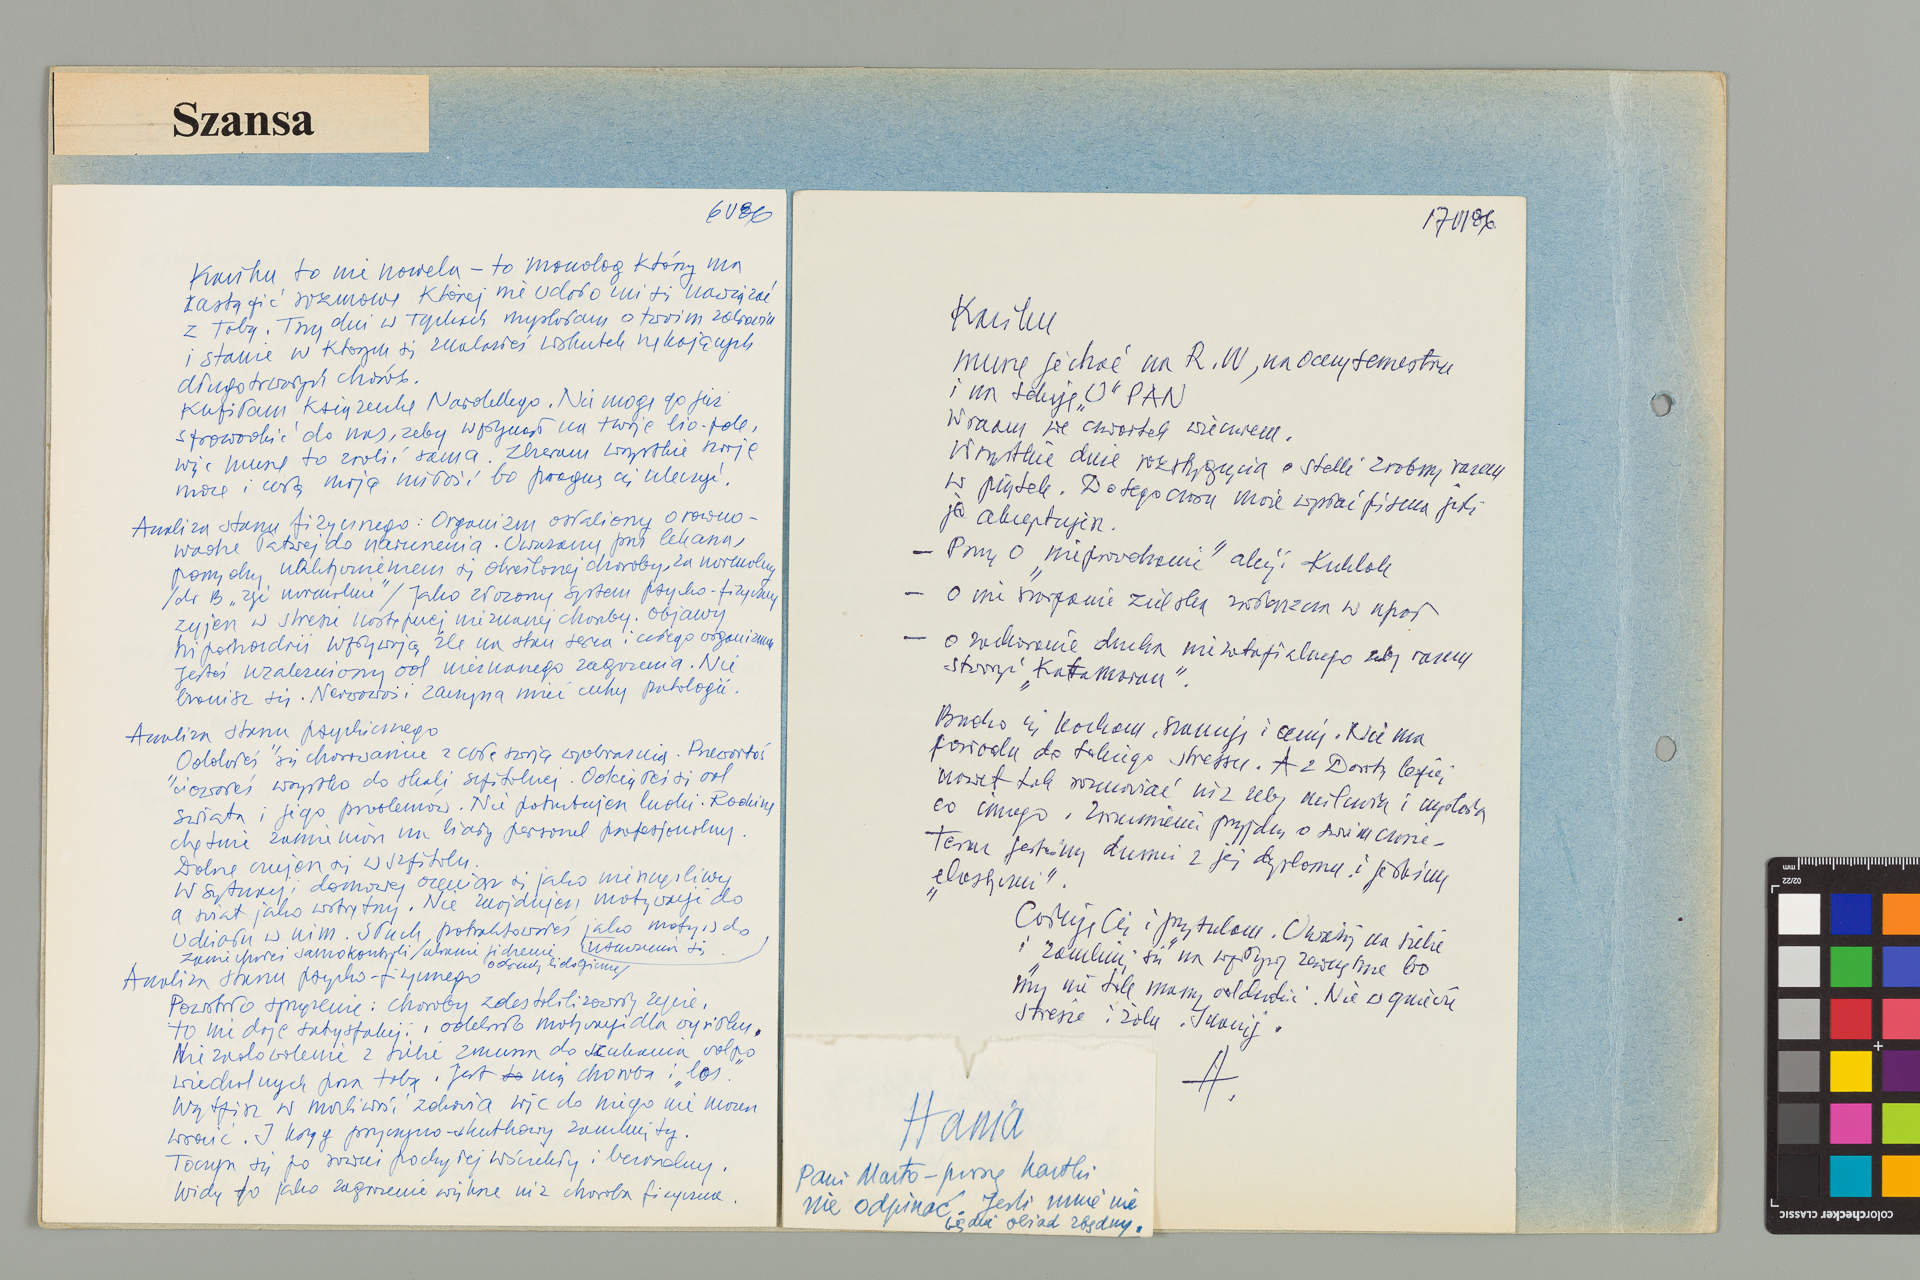 Szansa
6 V 86
to nie nowela – to monolog który ma
zastąpić rozmowę której nie udało mi się nawiązać
z Tobą. Trzy dni w Tychach myślałam o twoim zdrowiu
i stanie w którym się znalazłeś wskutek nękających
długotrwałych chorób.
Kupiłam książeczkę Nardellego. Nie mogę go już
sprowadzić do nas, żeby wpłynął na twoje bio-pole,
więc muszę to zrobić sama. Zbieram wszystkie swoje
moce i całą moją miłość bo pragnę cię uleczyć.
Analiza stanu fizycznego: Organizm osłabiony o równo-
wadze łatwej do naruszenia. Uważany przez lekarzy,
pomiędzy się określonej choroby, za normalny
/dr B „żyć normalnie”/ Jako złożony system psycho-fizyczny
żyjesz w stresie następnej nieznanej choroby. Objawy
wpływają źle na stan serca i całego organizmu
Jesteś uzależniony od nieznanego zagrożenia. Nie
bronisz się. Nerwowość zaczyna mieć cechy patologii.
Analiza stanu psychicznego
Oddałeś się chorowaniu z całą swoją wyobraźnią.
wszystko do skali szpitalnej. Odciąłeś się od
świata i jego problemów. Nie potrzebujesz ludzi. Rodzinę
chętnie zamieniasz na biały personel profesjonalny.
Dobrze czujesz się w szpitalu.
W sytuacji domowej oceniasz się jako nieszczęśliwy
a świat jako wstrętny. Nie znajdujesz motywacji do
udziału w nim. Słuch potraktowałeś jako motyw do
samokontroli / ubranie jedzenie
obrządy biologiczne/
Analiza stanu psycho-fizycznego
Powstało sprzężenie: choroby zdestabilizowały życie.
to nie daje satysfakcji, odebrało motywacji dla wysiłku.
Niezadowolenie z siebie zmusza do szukania odpo
wiedzialnych poza tobą. Jest to nią choroba i „los”.
Wątpisz w możliwość zdrowia więc do niego nie możesz
wrócić. I krąg przyczyno-skutkowy zamknięty.
Toczysz się po równi pochyłej wściekły i bezradny.
Widzę to jako zagrożenie większe niż choroba fizyczna.
17 VI 86
muszę jechać na R.W, na oceny semestru
i na sekcję „U” PAN
Wracam we czwartek wieczorem.
Wszystkie dnie rozstrzygnięcia o stelli zrobimy razem
w piątek. Do tego czasu może wysłać pisma jeśli
je akceptujesz.
– Proszę o „nieprowadzenie” akcji Kuklok
– o nie
– o zachowanie ducha żeby razem
stworzyć „Katamaran”.
Bardzo cię kocham, szanuję i cenię. Nie ma
powodu do takiego stressu. A z Dorotą lepiej
nawet tak rozmawiać niż żeby milczała i myślała
co innego. Zrozumienie przyjdzie o swoim czasie –
Teraz jesteśmy dumni z jej dyplomu i jesteśmy
Całuję Cię i przytulam. Uważaj na siebie
i „zamknij się” na wpływy zewnętrzne bo
my nie tak mamy oddychać. Nie w gniewie
stresie i żalu.
A.
Hania
Pani Marto – proszę kartki
nie odpinać. Jeśli mnie nie
będzie obiad zbędny.